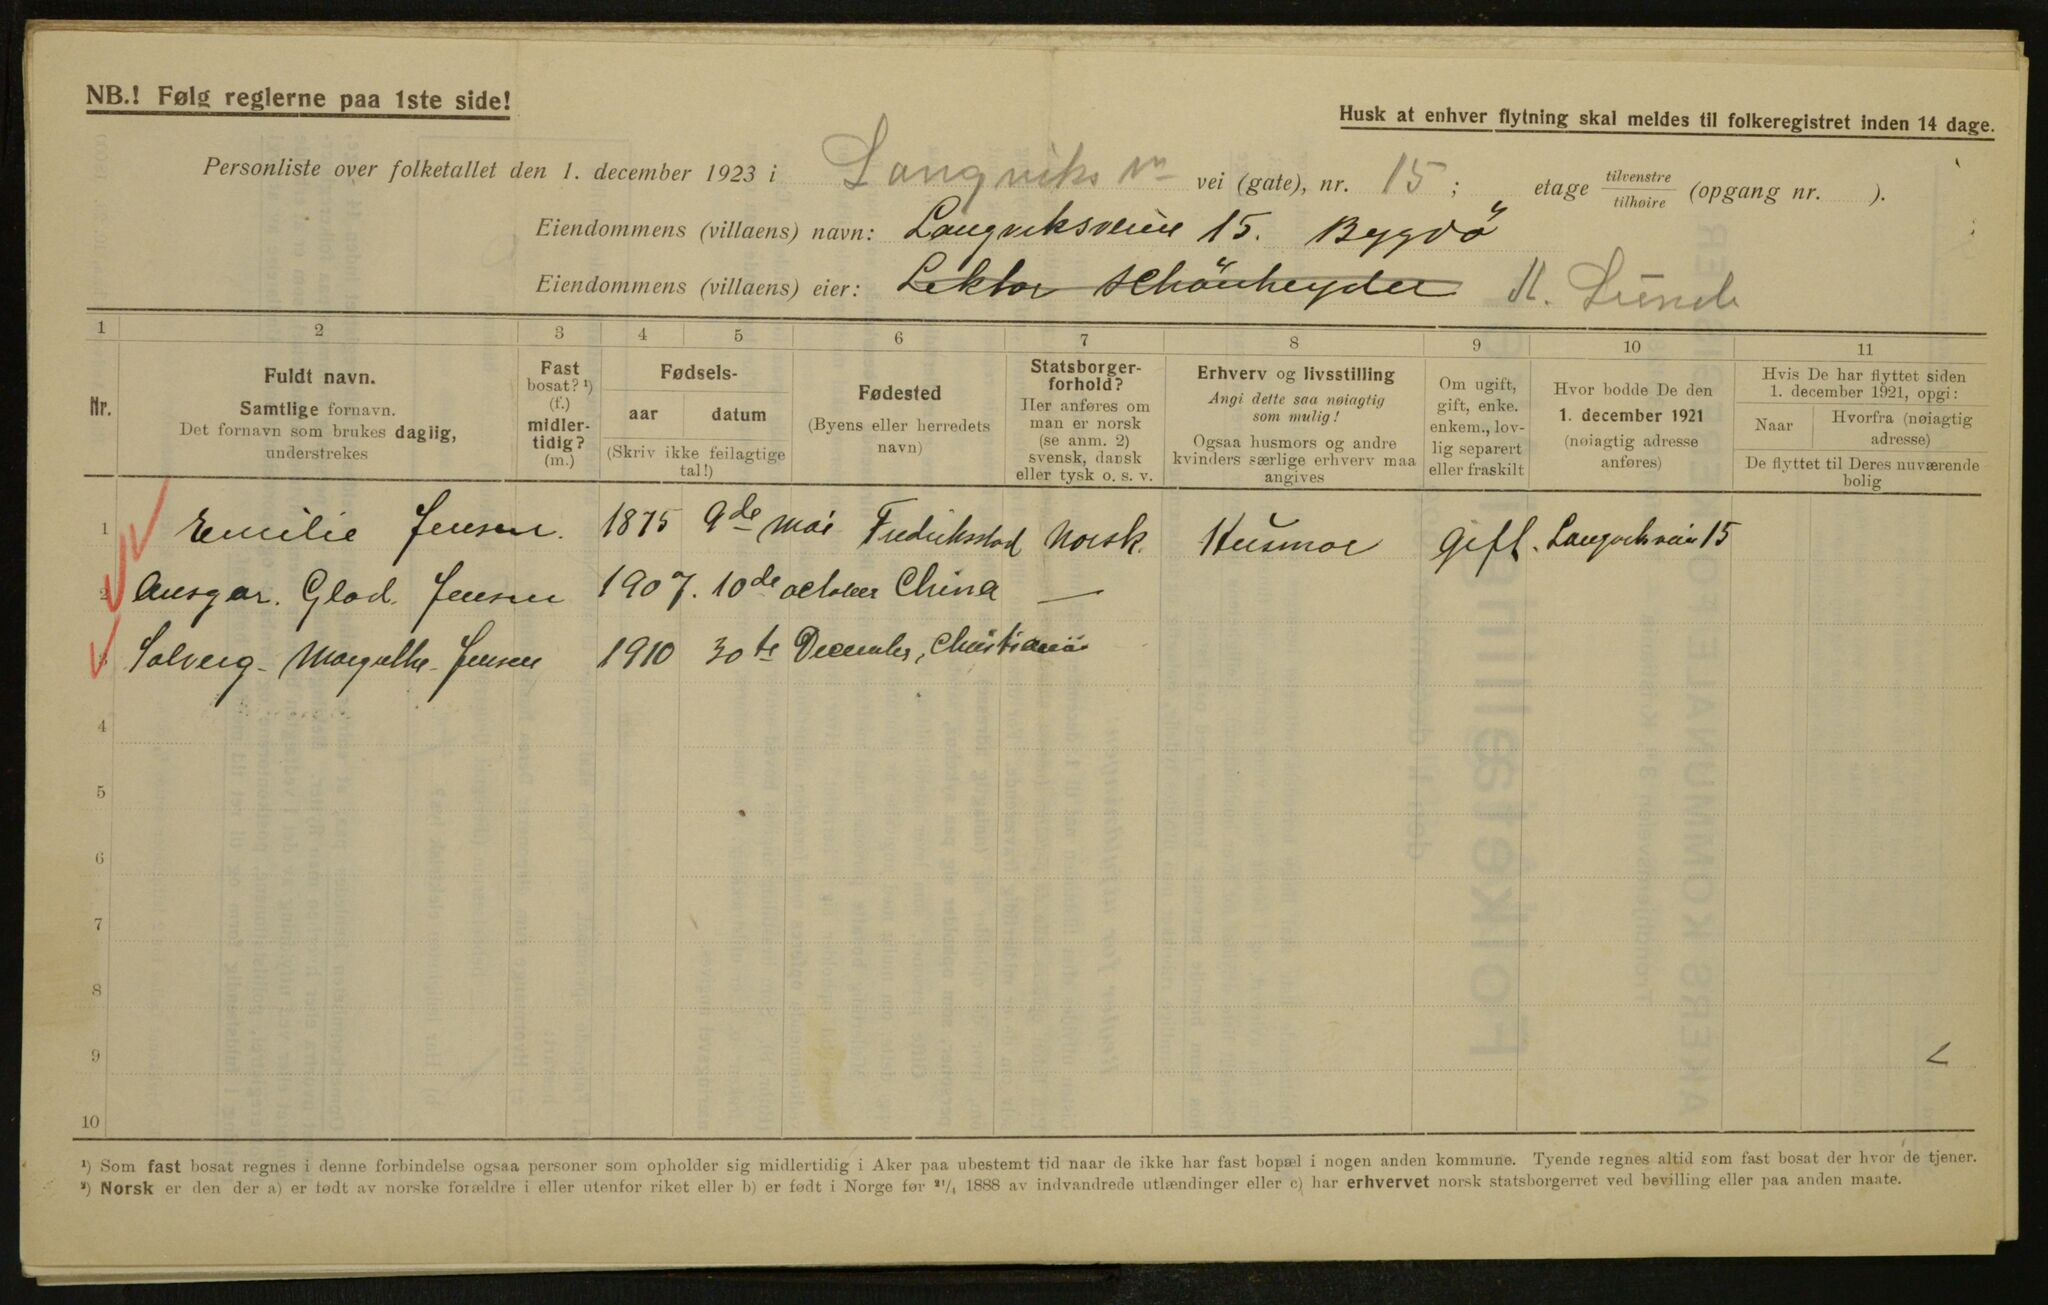 NB.! Følg reglerne paa 1ste side!
Husk at enhver flytning skal meldes til folkeregistret inden 14 dage.
Personliste over folketallet den 1. december 1923 i Langviks vn vei (gate), nr. 15; etage tilvenstre tilhøire (opgang nr. ).
Eiendommens (villaens) navn: Langviksveien 15. Bygdö
Eiendommens (villaens) eier: Lektor Schönheyder
1 2 3 4 5 6 7 8 9 10 11
Nr.
Fuldt navn.
Samtlige fornavn.
Det fornavn som brukes daglig,
understrekes
Fast
bosat? ¹)
(f.)
midler-
tidig?
(m.)
Fødsels-
aar datum
(Skriv ikke feilagtige
tal!)
Fødested
(Byens eller herredets
navn)
Statsborger-
forhold?
Her anføres om
man er norsk
(se anm. 2)
svensk, dansk
eller tysk o. s. v.
Erhverv og livsstilling
Angi dette saa nøiagtig
som mulig!
Ogsaa husmors og andre
kvinders særlige erhverv maa
angives
Om ugift,
gift, enke.
enkem., lov-
lig separert
eller fraskilt
Hvor bodde De den
1. december 1921
(nøiagtig adresse
anføres)
Hvis De har flyttet siden
1. december 1921, opgi:
Naar
Hvorfra (nøiagtig
adresse)
De flyttet til Deres nuværende
bolig
1 Emilie Jensen. 1875 9de Mai Fredriksstad Norsk. Husmor gift. Langviksvei 15
2 Ansgar. Glad. Jensen 1907. 10de october China —
3 Solveig - Margrethe - Jensen 1910 30te December, Christiania
4
5
6
7
8
9
10
¹) Som fast bosat regnes i denne forbindelse ogsaa personer som opholder sig midlertidig i Aker paa ubestemt tid naar de ikke har fast bopæl i nogen anden kommune. Tyende regnes altid som fast bosat der hvor de tjener.
²) Norsk er den der a) er født av norske forældre i eller utenfor riket eller b) er født i Norge før ²¹/₄ 1888 av indvandrede utlændinger eller c) har erhvervet norsk statsborgerret ved bevilling eller paa anden maate.